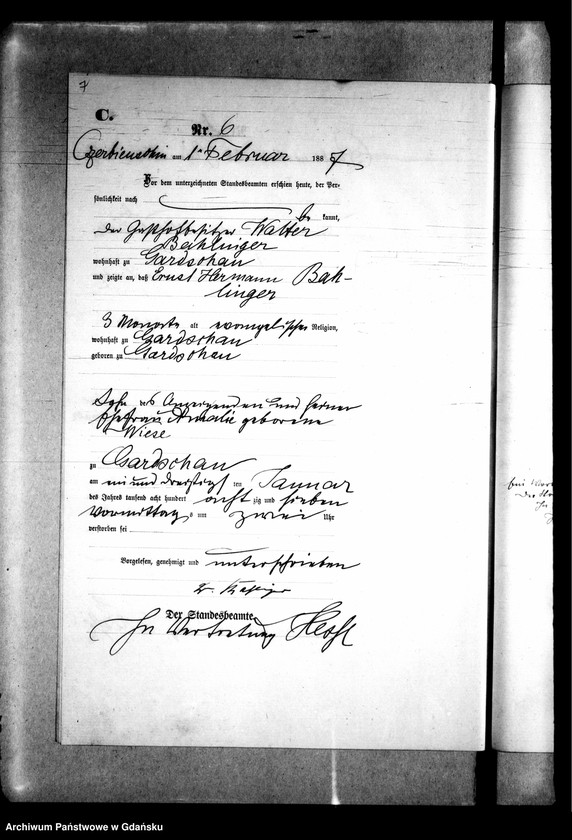 7
C.
Nr. 6
Czerbienschin am 1ten Februar 1887
Vor dem unterzeichneten Standesbeamten erschien heute, der Per-
sönlichkeit nach
be kannt,
der Gasthofbesitzer Walter
Bahlinger
wohnhaft zu Gardschau
und zeigte an, daß Ernst Hermann Bah-
linger
3 Monate alt evangelischer Religion,
wohnhaft zu Gardschau
geboren zu Gardschau
Sohn des Anzeigenden und seiner
Ehefrau Amalie geborene
Wiese
zu Gardschau
am ein und dreißigsten Januar
des Jahres tausend acht hundert achtzig und sieben
Vormittags um zwei Uhr
verstorben sei
Vorgelesen, genehmigt und unterschrieben
Der Standesbeamte
In Vertretung
Archiwum Państwowe w Gdańsku